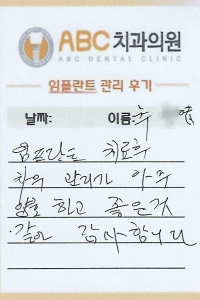 ABC 치과의원
ABC DENTAL CLINIC
임플란트 관리 후기
날짜: 이름: 추
임프란트 치료후
차의 관리가 아주
양호 하고 좋은것
같아 감사합니다